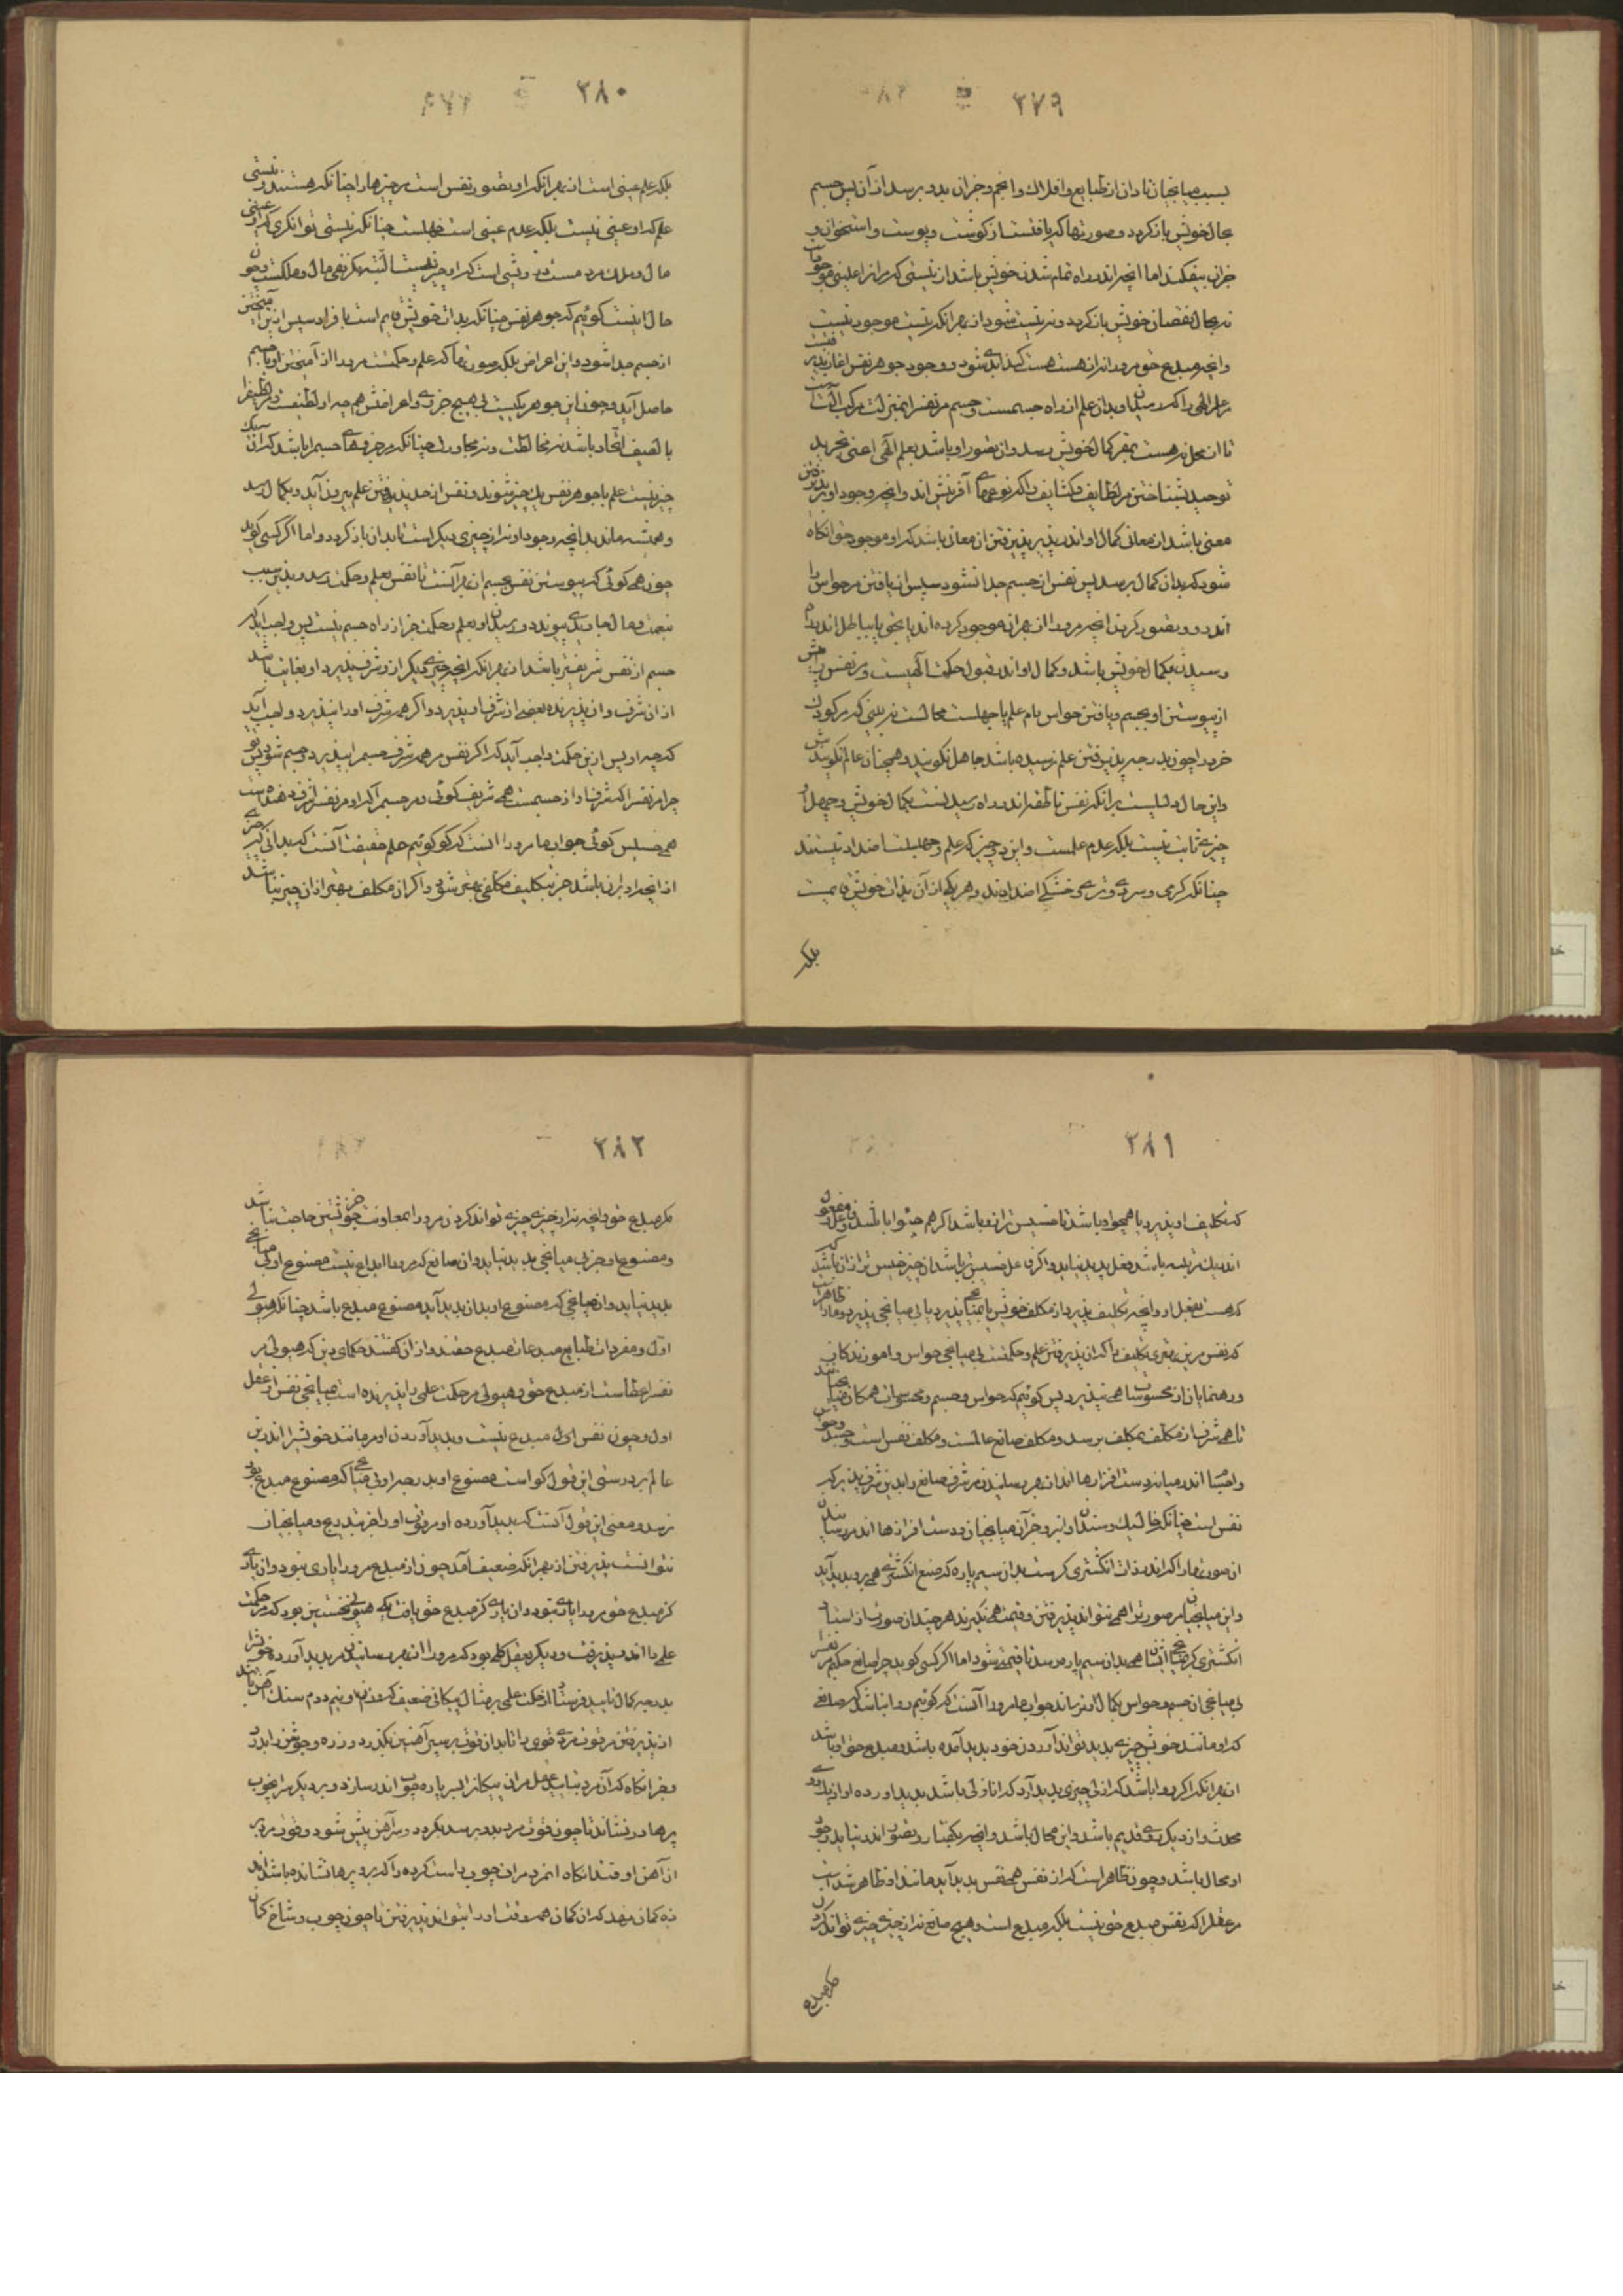 ٢٧٩
بسبب میانجیان تا دان از طبایع و افلاک و انجم و جزان بدو برسد از آن پس جسم
بحال خویش بازکردد و صورتها که یافتست از کوشت و پوست و استخوان و
جزان بیفکند اما انچه اندر راه تمام شدن خویش باشد از نیستی
نه بحال نقصان خویش بازکردد و نه نیست شود از بهر انکه نیست موجود نیست
وانچه مبدع حق مرو را از هست هست کند و وجود جوهر نفس
علم الهی را و بدان علم از راه جسمست و جسم مر نفس را بمنزلت مرکب
تا از محل نه هست بمقر کمال خویش رسد و ان تصور او باشد بعلم الهی اعنی تجرید
توحید بشناختن مر لطایف و کثایف را که نوعهای آفرینش اند و انچه وجود او
معنی باشد از معانی کمال او اندر پذیرفتن ان معانی باشد که او موجود حق انکاه
شود که بدان کمال برسد پس نفس از جسم جدا نشود سپس از یافتن مر حواس را
اندرو و تصور کردن انچه مرو را از بهر ان موجود کرده اند یا بحق یا بباطل
رسیدن بکمال خویش باشد و کمال او اندر قبول حکمت الهیست و مر نفس را پیش
از پیوستن او بجسم و یافتن حواس نام علم یا جهلست محالست نه بینی که مر کودک
خرد را چون بدرجه پذیرفتن علم نرسیده باشد جاهل نکویند و همچنان عالم نکویندش
واین حال دلیلست برانکه نفس ناطقه اندر راه رسیدنست بکمال خویش و جهل
چیزی ثابت نیست بلکه عدم علمست و این دو چیز که علم و جهلست اضداد نیستند
چنانکه کرمی و سردی و تری و خشکی اضدادند و هر یکی از آن بذات خویش قایمست
بلکه
٢٨٠
بلکه علم عینی است از بهر انکه او تصور نفس است مر چیزها را چنانکه هستند و نیستی
علم که او عینی نیست بلکه عدم عینی است جهلست چنانکه نیستی توانکری که او عینی
مال و ملک مرد مست و نیستی است که او چیز نیست البته مکر نفی مال و ملکست و چون
حال اینست کوئیم که جوهر نفس چنانکه بذات خویش قایم است
از جسم جدا شود و این اعراض بلکه صورتها که علم و حکمت مرو را از آمیختن او با جسم
حاصل آید و چون این جوهر یکیست بی هیچ جزوی و اعراضش هم چو او لطیفست و مر لطیف را
با لطیف اتحاد باشد نه مخالطت و نه مجاورت چنانکه مر جزوهای جسم را باشد
چیز نیست علم با جوهر نفس یک چیز شوند و نفس از حد پذیرفتن علم بیرون آید و بکمال رسد
و همیشه ماند بدانچه وجود او نه از چیزی دیکر است تا بدان بازکردد و اما اکر کسی کوید
چون همی کوئی که پیوستن نفس بجسم از بهر آنست تا نفس بعلم و حکمت رسد
بنعمت و مال جاویدی پیوندد و رسیدن او بعلم و حکمت جز از راه جسم نیست پس واجب
جسم از نفس شریفتر باشد از بهر انکه انچه چیزی دیکر ازو شرف پذیرد او بغایت باشد
از ان شرف و ان پذیرنده بعضی از شرف او پذیرد و اکر همه شرف او را بپذیرد واجب آید
که چو او پس ازین حکمت واجب آید که اکر نفس مر همه شرف جسم را بپذیرد جسم شود پس تو
چرا مر نفس را که شرف او از جسمست همی شریف کوئی و مر جسم را که او مر نفس را شرف دهنده است
همی خسیس کوئی جواب ما مرو را انست که کوئیم حکم حقیقت آنست که بدانی که هر چیزی
از انچه او بران باشد جز بتکلیف مکلفی بهتر نشود و اکر ان مکلف بهتر از ان چیز نباشد
٢٨١
که تکلیف او پذیرد یا همچو او باشد یا خسیس تر ازو باشد اکر هم چو او باشد فاعل و مفعول
اندر یک مرتبه باشد فعل پدید نیاید و اکر فاعل خسیس تر باشد ان چیز خسیس تر از ان باشد که
که هست بفعل او و انچه تکلیف پذیرد از مکلف خویش یا بمیانجی پذیرد یا بی میانجی پذیرد و ما را ظاهر است
که نفس مر این بهتری تکلیف را که ان پذیرفتن علم و حکمتست بی میانجی حواس و اموزندکان
و رهنمایان از محسوسات همی نپذیرد پس کوئیم که حواس و جسم و محسوسات همکان میانجیانند
تا همی شرف از مکلف بمکلف برسد و مکلف صانع عالمست و مکلف نفس است و جسد و حواس
و احساسا اندر میانه دست افزارها اند از بهر رسانیدن مر شرف صانع را بدین شرف پذیر که
نفس است چنانکه خایسک و سندان و انبر و جزان میانجیان و دست افزارها اند
ان صورتها را که اندر ذات انکشتری کرست بدان سیم پاره که صنع انکشتری همی برو پدید آید
و این میانجیان مر صورت را همی نتوانند پذیرفتن و قیمت همی نکیرند هر چند ان صورت از استاد
انکشتری کر بمیانجی ایشان همی بدان سیم پاره رسد تا قیمتی شود اما اکر کسی کوید چرا صانع حکیم مر نفس را
بی میانجی ان جسم و حواس بکمال او نرساند جواب ما مرو را آنست که کوئیم روا نباشد که صانعی
که او مانند خویش چیزی پدید تواند آوردن خود پدید آمده باشد و مبدع حق او باشد
از بهر انکه اکر روا باشد که ازلی چیزی پدید آرد که ان ازلی باشد پدید اورده او از یک روی
محدث و از دیکر روی قدیم باشد و این محال باشد و انچه بکفتار و تصور اندر نیاید
او محال باشد و چون ظاهر است که از نفس همی نفس پدید آید مانند او ظاهر شده است
مر عقلا را که نفس مبدع حق نیست بلکه مبدع است و هیچ صانع نه از چیزی چیزی نتواند کردن
مکر مبدع
٢٨٢
مکر مبدع حق و انچه نه از چیزی چیزی تواند کردن مرو را بمعاونت جز خویشتن حاجت نباشد
و مصنوع او جز بی میانجی پدید نیاید و ان صانع که مرو را ابداع نیست مصنوع او بی میانجی
پدید نیاید و ان میانجی که مصنوع او بدان پدید آید مصنوع مبدع باشد چنانکه هیولی
اول و مفردات طبایع مبدعات مبدع حقند و از ان کفتند حکمای دین که هیولی مر
نفس را عطاست از مبدع حق و هیولی مر حکمت علمی را پذیرنده است بمیانجی نفس از عقل
اول و چون نفس اول مبدع نیست و پدید آوردن او مر مانند خویش را اندرین
عالم بر درستی این قول کواست مصنوع او بدرجه او بی میانجی که مصنوع مبدع بود
نرسد و معنی این قول آنست که پدید آورده او مر قوت او را جز بتدریج و میانجیان
نتوانست پذیرفتن از بهر انکه ضعیف آمد چون از مبدع مرو را یاری نبود و ان یاری
کز مبدع حق مرو را یاری نبود و ان یاری کز مبدع حق یافت یکی هیولی نخستین بود که مر حکمت
علمی را اندر پذیرفت و دیکر عقل کلی بود که مرو را از بهر رسانیدن مر پدید آورده خویش را
بدرجه کمال تایید فرستاد از حکمت علمی بر مثال پیکانی ضعیف کز وزن او نیم درم سنک آهن باشد
از پذیرفتن مر قوت مردی قوی را تا بدان قوت بر سپر آهنین بکذرد و زره و جوشن را بدرد
وز انکاه که آن مرد بباید عمل مران پیکان را بسر پاره چوب اندر سازد و بر دیکر سر ان چوب
پرها در نشاند تا چون قوت مرد بدو برسد نکردد و سر آهن پیش شود و قوت مرد بر
ان آهن اوفتد انکاه ان مرد مران چوب راست کرده را که برو پرها نشانده باشد اندر
زه کمان نهد که ان کمان همه قوت او را بتواند پذیرفتن تا چون چوب و شاخ کمان